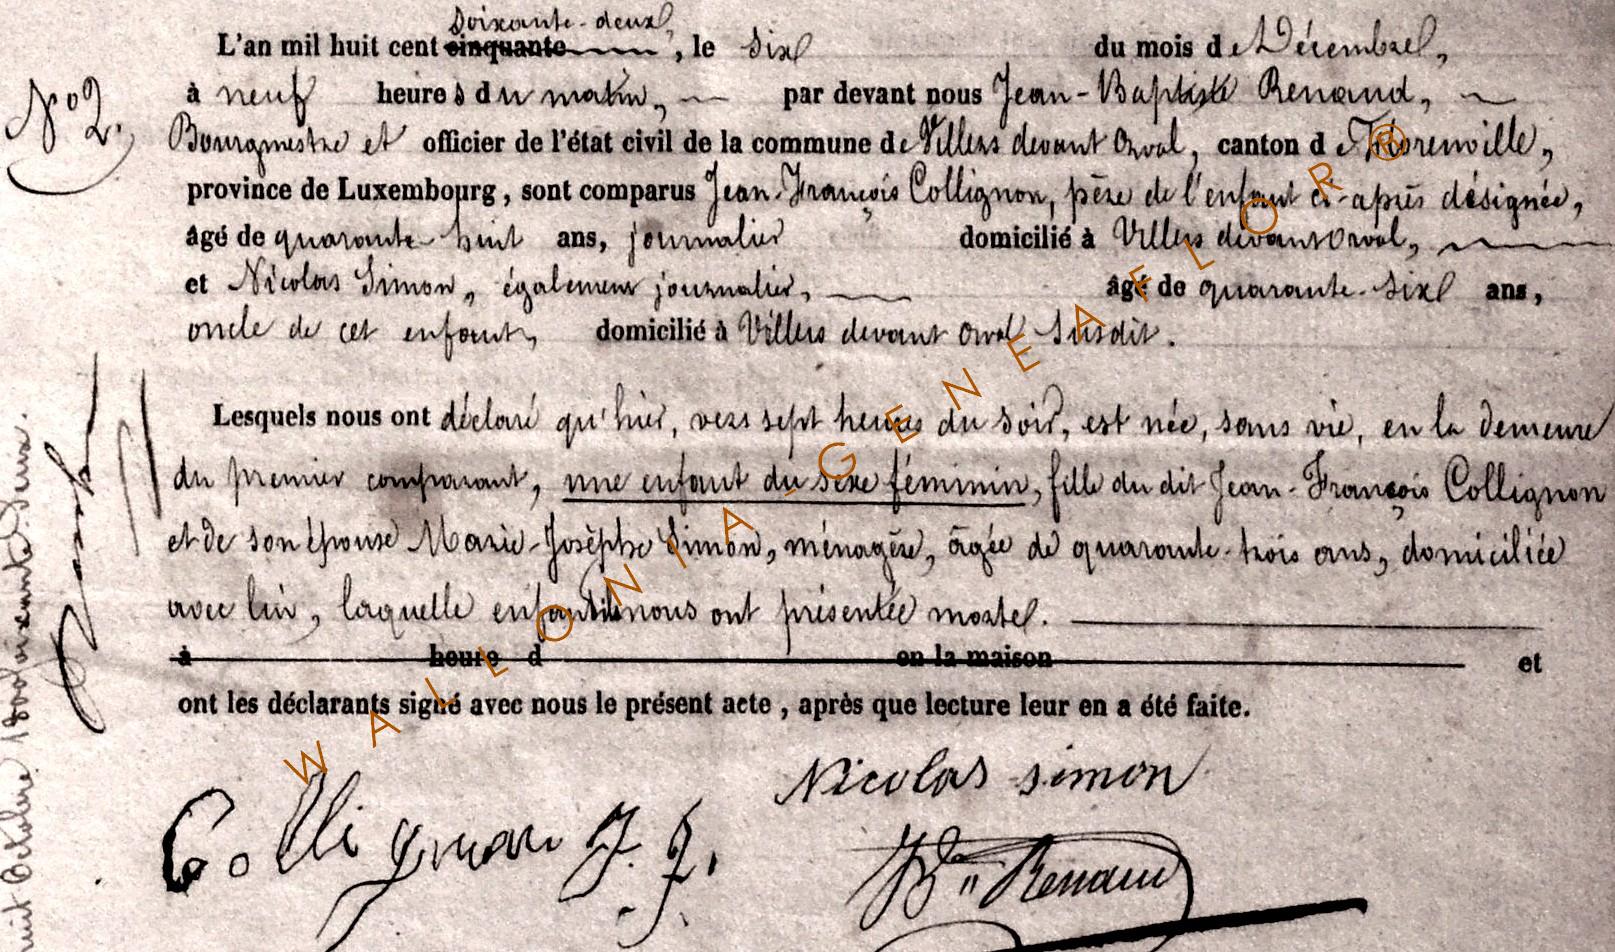 Soixante-deux,
L'an mil huit cent cinquante, le six du mois de Décembre,
N° 2.
à neuf heures du matin, par devant nous Jean-Baptiste Renaud,
Bourgmestre et officier de l'état civil de la commune de Villers devant Orval, canton de Florenville,
province de Luxembourg, sont comparus Jean-François Collignon, père de l'enfant ci-après désignée,
âgé de quarante-huit ans, journalier domicilié à Villers devant Orval,
et Nicolas Simon, également journalier, âgé de quarante-six ans,
oncle de cet enfant, domicilié à Villers devant Orval susdit.
Lesquels nous ont déclaré qu'hier, vers sept heures du soir, est née, sans vie, en la demeure
du premier comparant, une enfant du sexe féminin, fille du dit Jean-François Collignon
et de son épouse Marie-Josèphe Simon, ménagère, âgée de quarante-trois ans, domiciliée
avec lui, laquelle enfant ils nous ont présentée morte.
à heure d en la maison et
ont les déclarants signé avec nous le présent acte, après que lecture leur en a été faite.
Nicolas simon
Collignon J. f.
JBte Renaud
WALLONIA-GENEAFLOR®